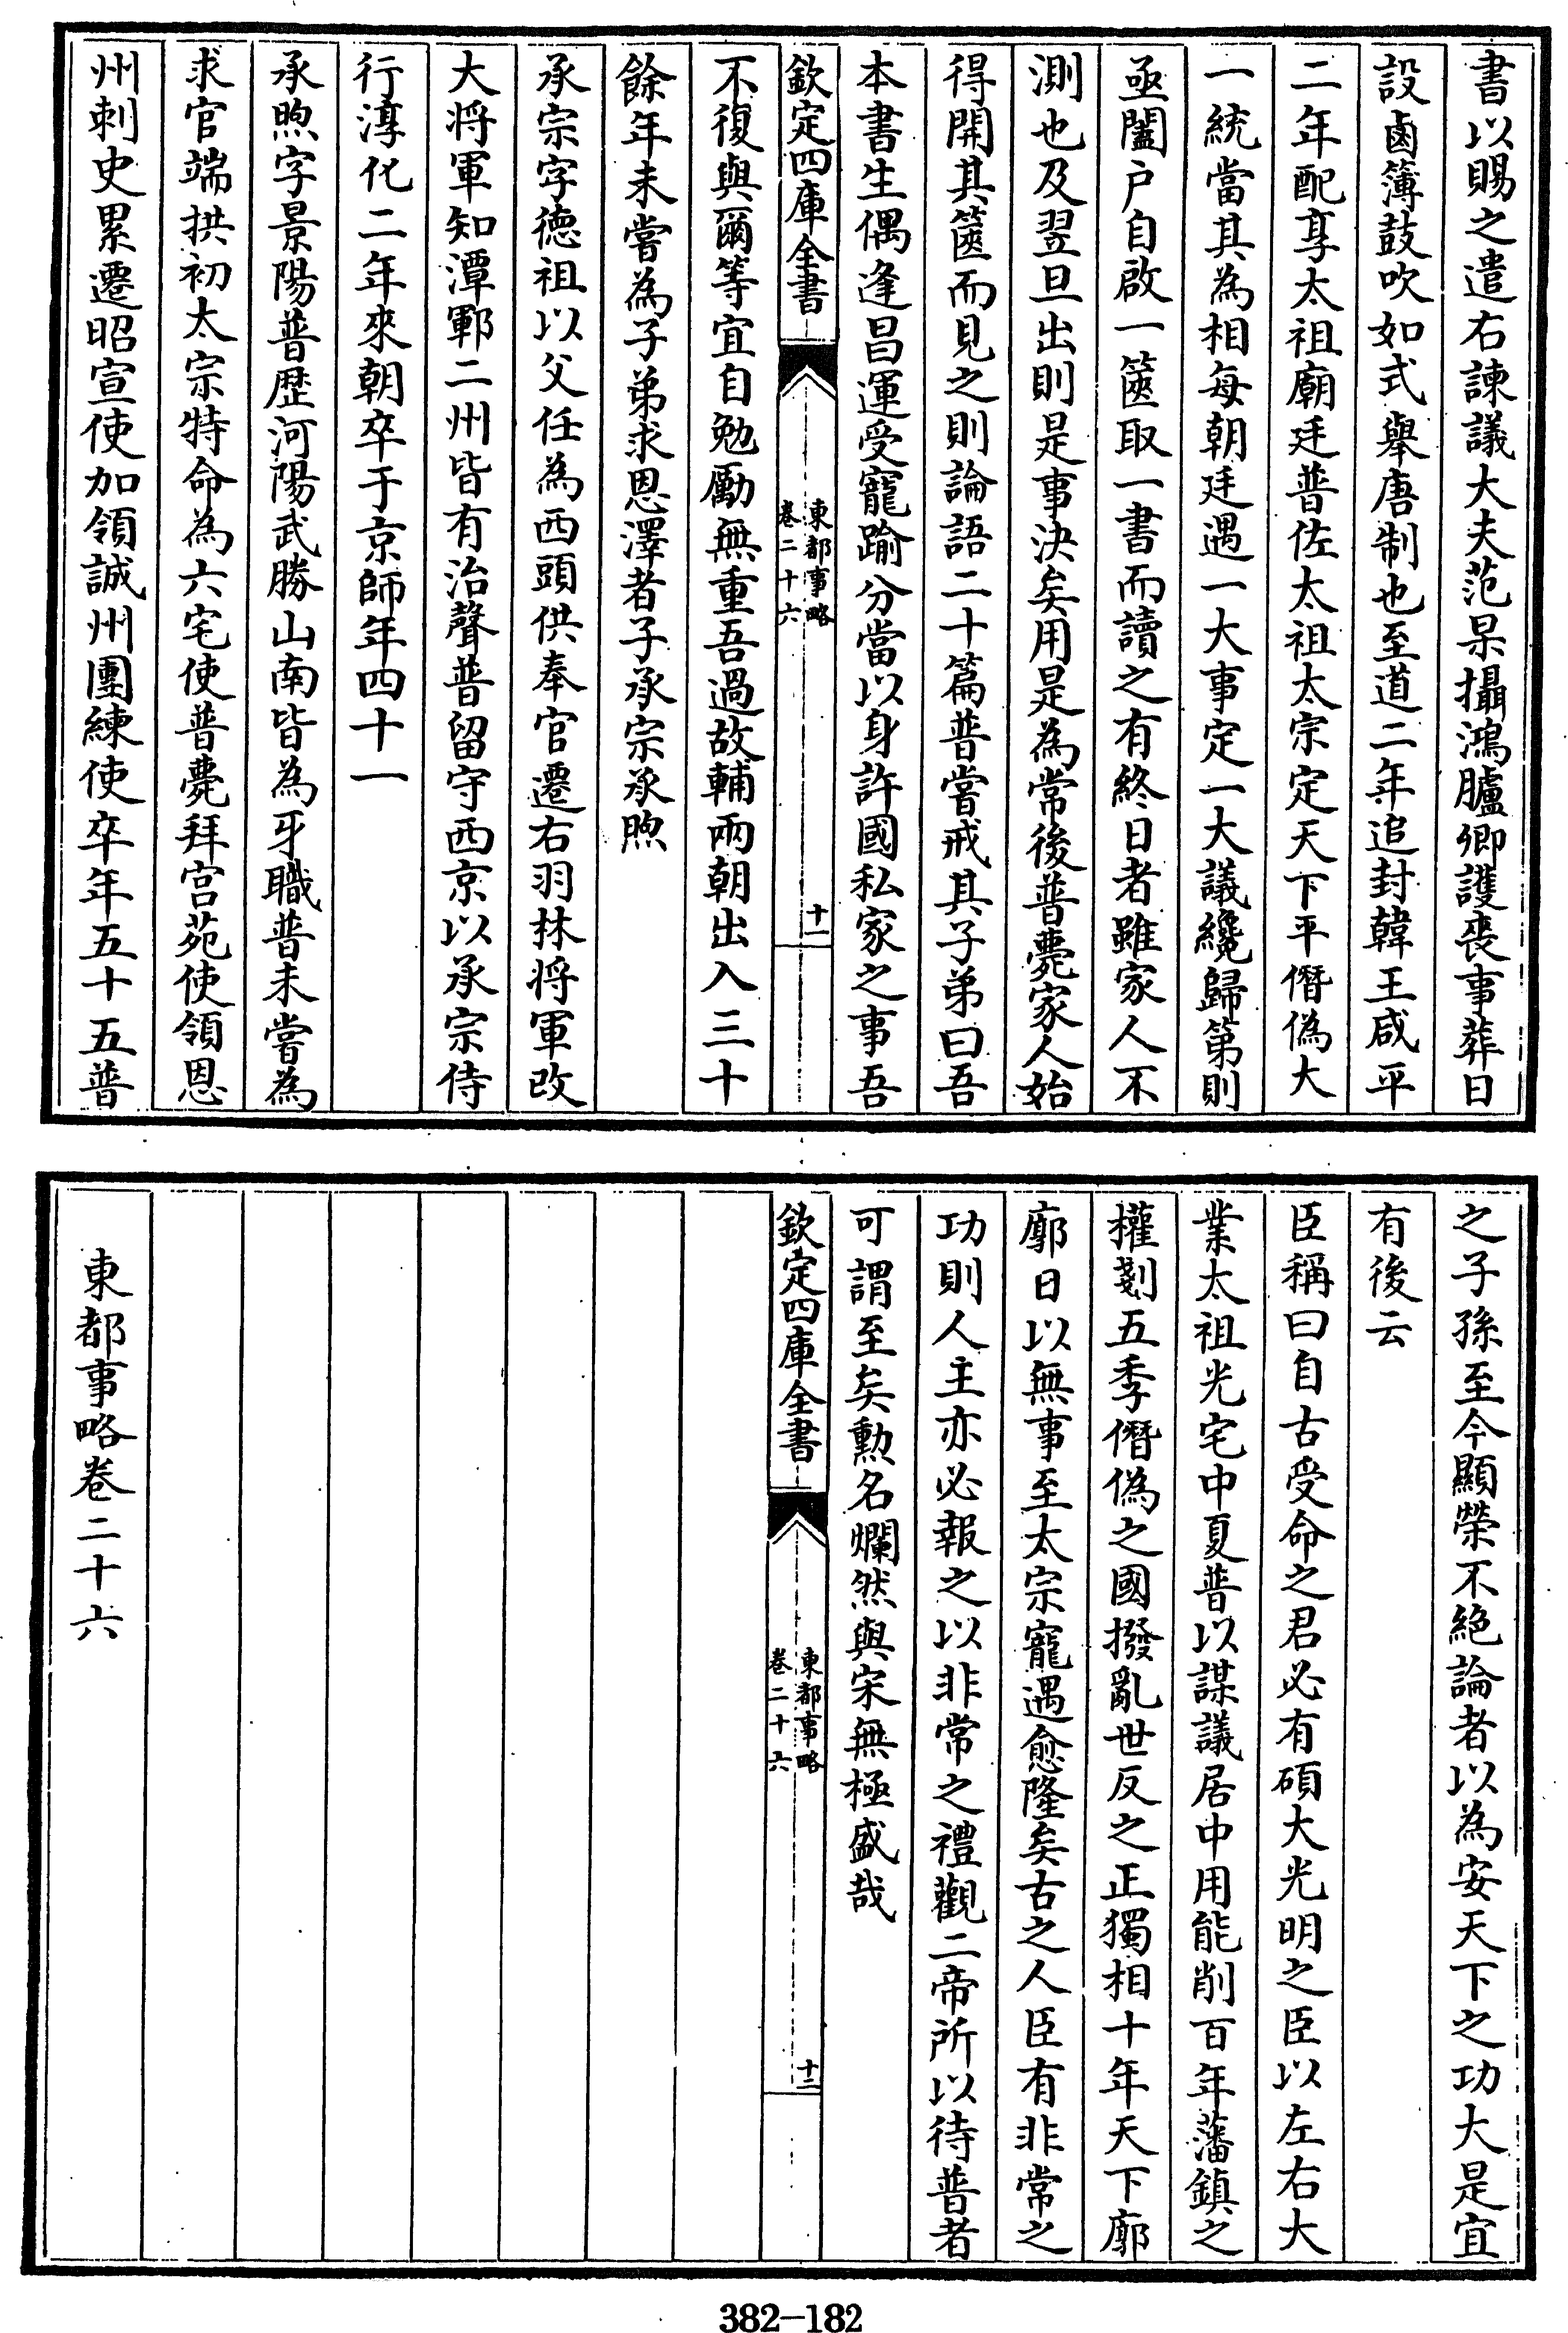 書以賜之遣右諫議大夫范杲攝鴻臚卿護喪事葬日
設鹵簿鼓吹如式舉唐制也至道二年追封韓王咸平
二年配享太祖廟廷普佐太祖太宗定天下平僭偽大
一統當其為相每朝廷遇一大事定一大議纔歸第則
亟闔户自啟一篋取一書而讀之有終日者雖家人不
測也及翌旦出則是事決矣用是為常後普薨家人始
得開其篋而見之則論語二十篇普嘗戒其子弟曰吾
本書生偶逢昌運受寵踰分當以身許國私家之事吾
欽定四庫全書
東都事略
卷二十六
十一
不復與爾等宜自勉勵無重吾過故輔兩朝出入三十
餘年未嘗為子弟求恩澤者子承宗承煦
承宗字德祖以父任為西頭供奉官遷右羽林将軍改
大将軍知潭鄆二州皆有治聲普留守西京以承宗侍
行淳化二年來朝卒于京師年四十一
承煦字景陽普歴河陽武勝山南皆為牙職普未嘗為
求官端拱初太宗特命為六宅使普薨拜宫苑使領恩
州刺史累遷昭宣使加領誠州團練使卒年五十五普
之子孫至今顯榮不絶論者以為安天下之功大是宜
有後云
臣稱曰自古受命之君必有碩大光明之臣以左右大
業太祖光宅中夏普以謀議居中用能削百年藩鎮之
權剗五季僭偽之國撥亂世反之正獨相十年天下廓
廓日以無事至太宗寵遇愈隆矣古之人臣有非常之
功則人主亦必報之以非常之禮觀二帝所以待普者
可謂至矣勲名爛然與宋無極盛哉
欽定四庫全書
東都事略
卷二十六
十二
東都事略卷二十六
382-182